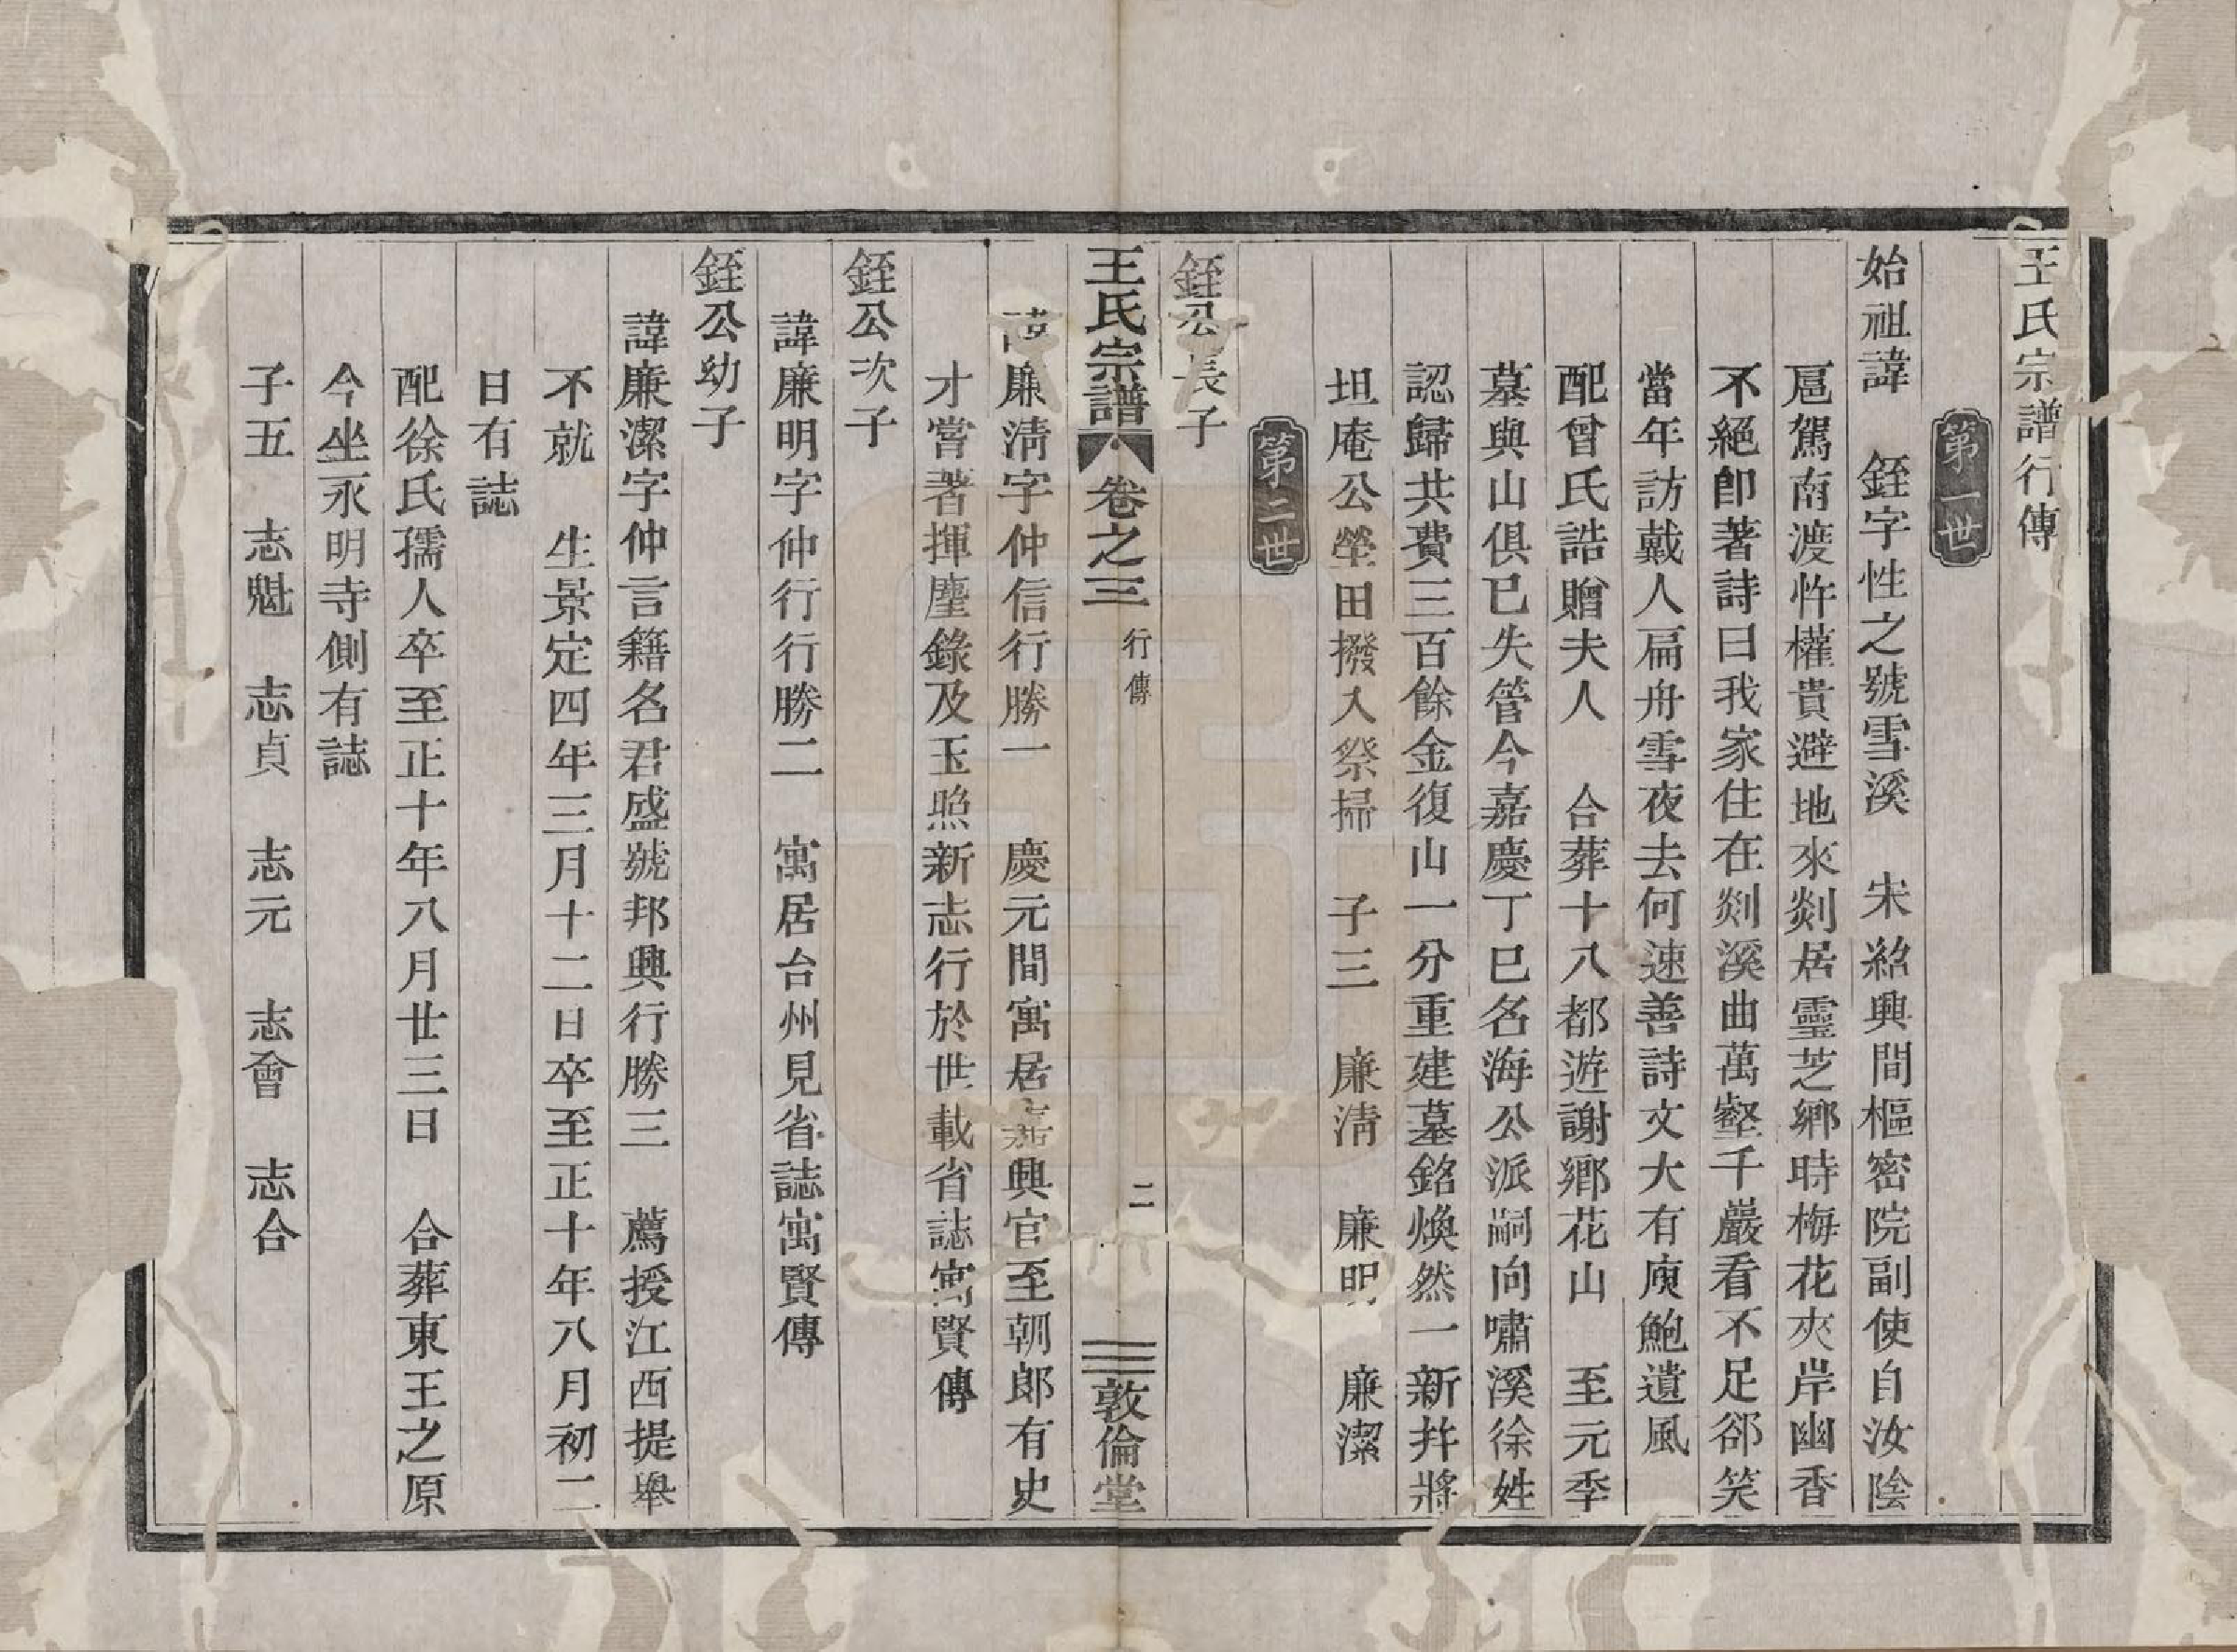 王氏宗譜行傳
第一世
始祖諱 銍字性之號雪溪 宋紹興間樞密院副使自汝陰
扈駕南渡忤權貴避地來剡居靈芝鄉時梅花夾岸幽香
不絕卽著詩曰我家住在剡溪曲萬壑千巖看不足郤笑
當年訪戴人扁舟雪夜去何速善詩文大有庾鮑遺風
配曾氏誥贈夫人 合葬十八都遊謝鄉花山 至元季
墓與山俱已失管今嘉慶丁巳名海公派嗣向嘯溪徐姓
認歸共費三百餘金復山一分重建墓銘煥然一新幷將
坦庵公塋田撥入祭掃 子三 廉淸 廉明 廉潔
第二世
銍公長子
王氏宗譜 卷之三 行傳 二 敦倫堂
諱廉淸字仲信行勝一 慶元間寓居嘉興官至朝郎有史
才嘗著揮塵錄及玉照新志行於世載省誌寓賢傳
銍公次子
諱廉明字仲行行勝二 寓居台州見省誌寓賢傳
銍公幼子
諱廉潔字仲言籍名君盛號邦興行勝三 薦授江西提舉
不就 生景定四年三月十二日卒至正十年八月初二
日有誌
配徐氏孺人卒至正十年八月廿三日 合葬東王之原
今坐永明寺側有誌
子五 志魁 志貞 志元 志會 志合